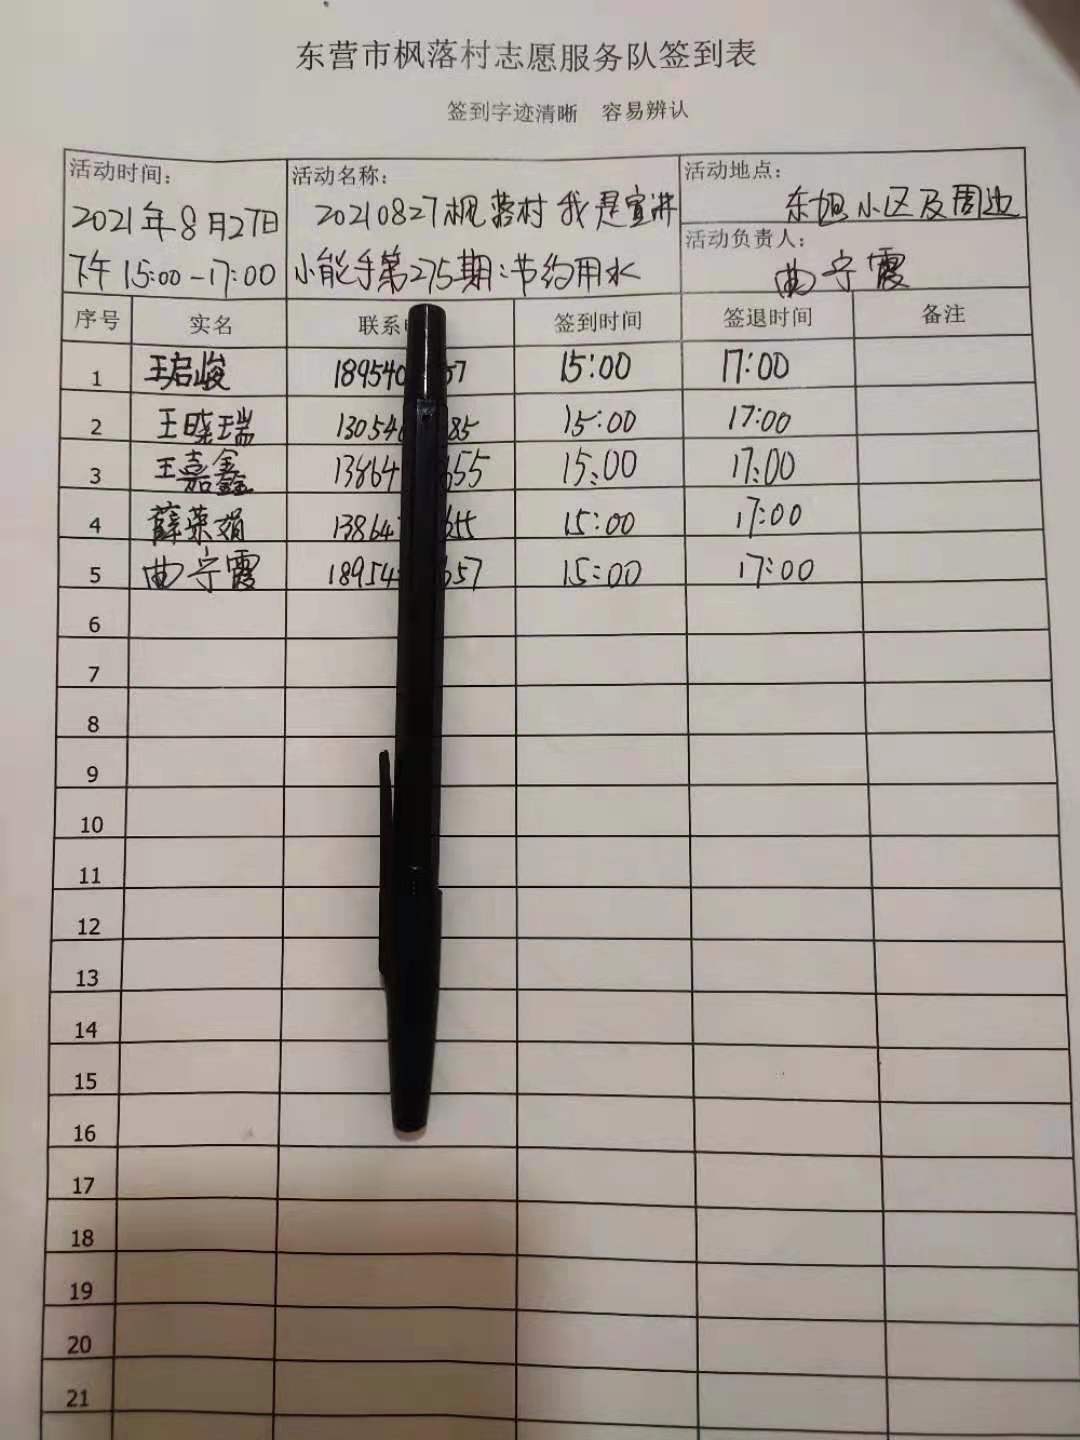 东营市枫落村志愿服务队签到表
签到字迹清晰 容易辨认
活动时间:
2021年8月27日
下午15:00-17:00
活动名称:
20210827枫落村 我是宣讲
小能手第275期:节约用水
活动地点:
东旭小区及周边
活动负责人:
曲宁霞
序号 实名 联系 签到时间 签退时间 备注
1 王启峻 189540 57 15:00 17:00
2 王晓瑞 13054 85 15:00 17:00
3 王嘉鑫 13864 655 15:00 17:00
4 薛荣娟 13864 655 15:00 17:00
5 曲宁霞 18954 657 15:00 17:00
6
7
8
9
10
11
12
13
14
15
16
17
18
19
20
21